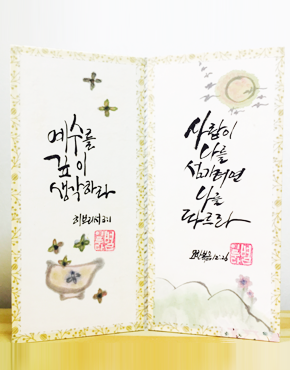 예수를
깊이
생각하라
히브리서 3:1
사람이
나를
섬기려면
나를
따르라
요한복음 12:26